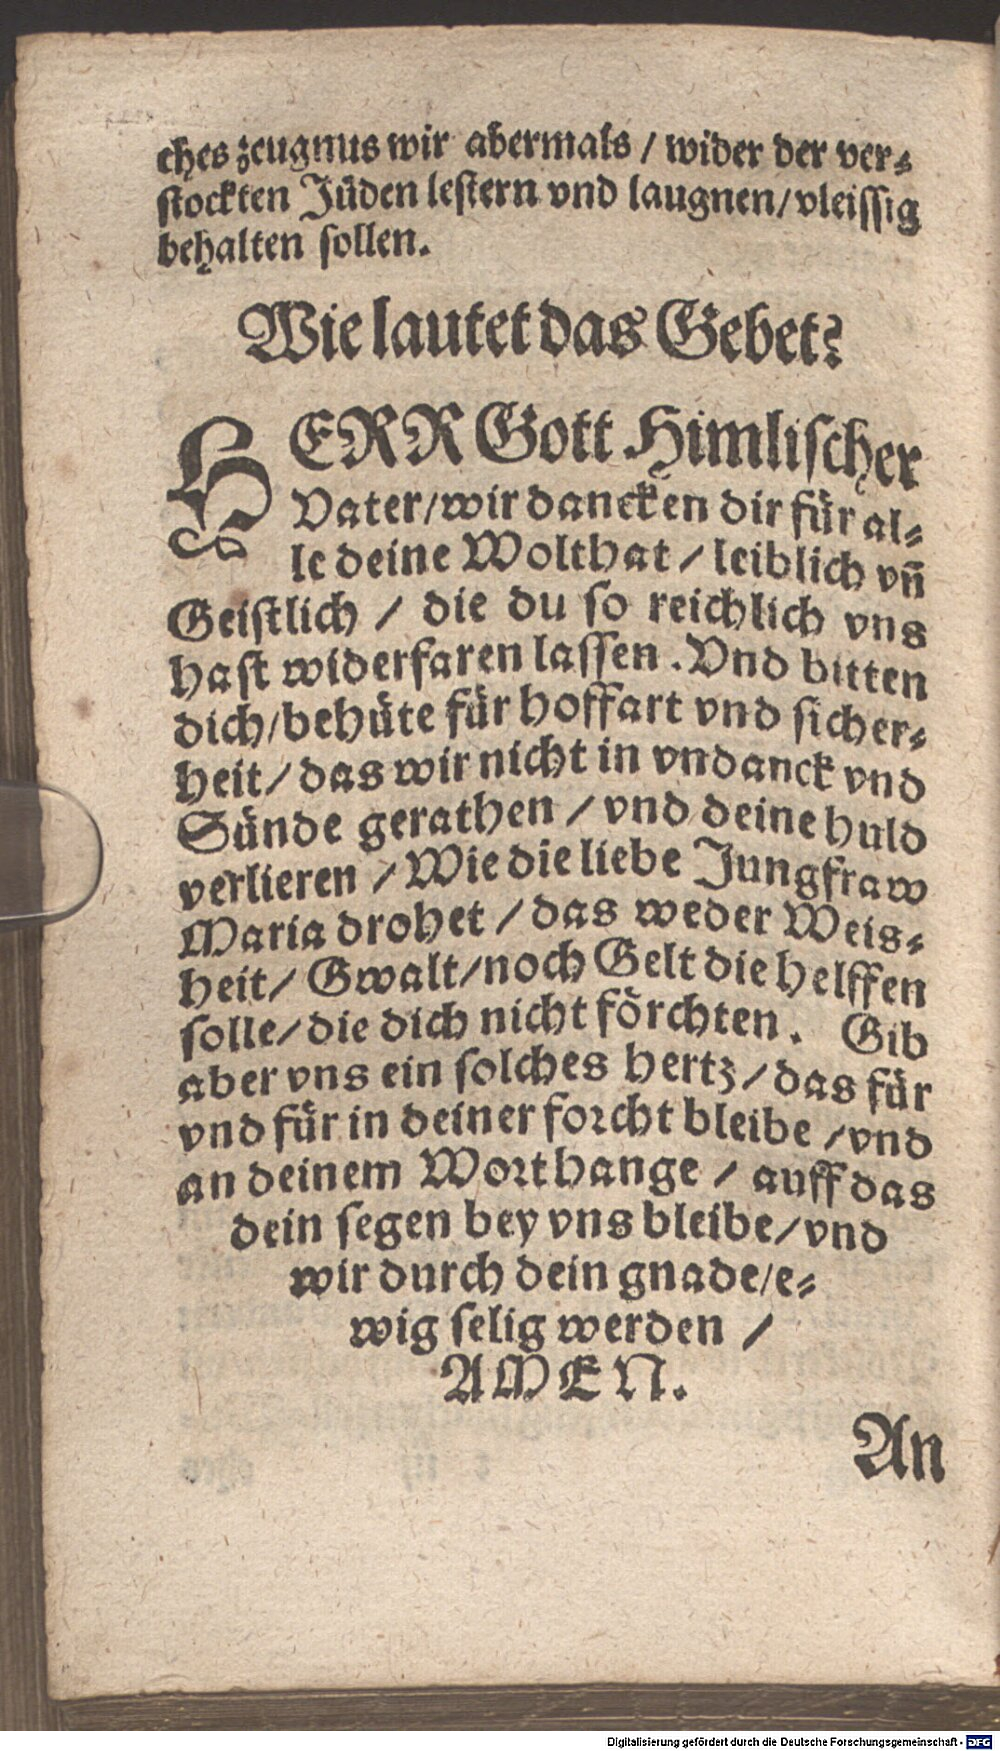 ches zeugnus wir abermals / wider der ver-
stockten Jüden lestern vnd laugnen / vleissig
behalten sollen.
Wie lautet das Gebet?
HERR Gott Himlischer
Vater / wir dancken dir für al-
le deine Wolthat / leiblich vñ
Geistlich / die du so reichlich vns
hast widerfaren lassen. Vnd bitten
dich / behüte für hoffart vnd sicher-
heit / das wir nicht in vndanck vnd
Sünde gerathen / vnd deine huld
verlieren / Wie die liebe Jungfraw
Maria drohet / das weder Weis-
heit / Gwalt / noch Gelt die helffen
solle / die dich nicht förchten. Gib
aber vns ein solches hertz / das für
vnd für in deiner forcht bleibe / vnd
an deinem Wort hange / auff das
dein segen bey vns bleibe / vnd
wir durch dein gnade / e-
wig selig werden /
AMEN.
An
Digitalisierung gefördert durch die Deutsche Forschungsgemeinschaft - DFG